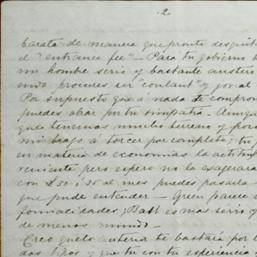 2
barata de manera que pronto desquit
el "entrance fee" - Para tu gobierno
un hombre serio y bastante austero
ser "constant" y
Por supuesto que á nada te compro
puedes obrar por tu simpatia.
que tenemos mucho terreno y
á torcer por completo; tu
en materia de economias la actitud
pero espero no la exagerara
con £30 ó 35 al mes puedes pasarla
que pude entender - Green parece
formalidades; Batt es mas serio y
de menos mundo -
Creo que la te bastará por
dos y que tu con tu experiencia